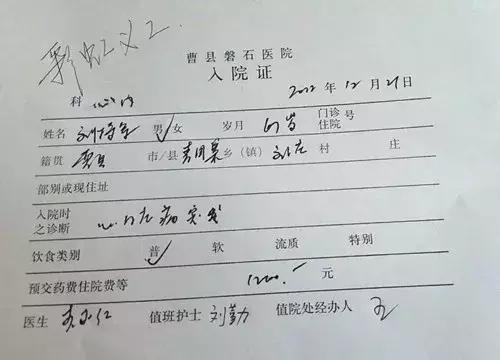 彩虹义工
曹县磐石医院
入院证
科 心内 2012年12月21日
姓名 刘 男✓女 岁月 岁 门诊 住院 号
籍贯 曹县 市/县 青固集 乡(镇) 刘庄 村 庄
部别或现住址
入院时之诊断 心脏病突发
饮食类别 普✓ 软 流质 特别
预交药费住院费等 1200.- 元
医生 值班护士 刘勤 值院处经办人 王